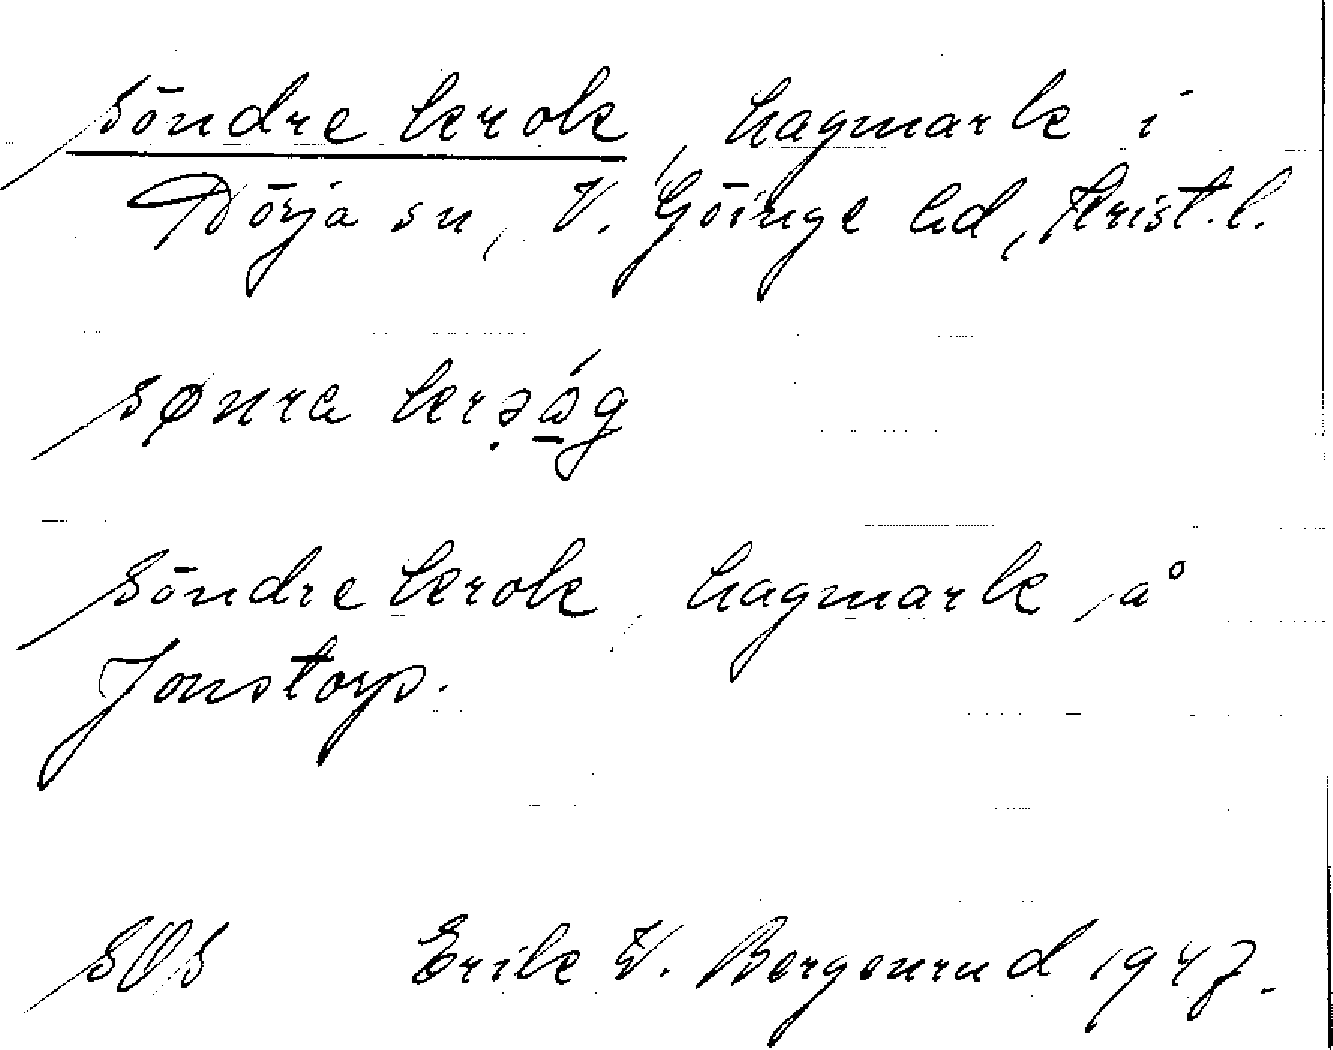 söndre krok, hagmark i
Dörja sn, V. Göinge hd, Krist.l.
sønra krog
söndre krok, hagmark å
Jonstorp.
SOS Erik W. Bergenrud 1947.